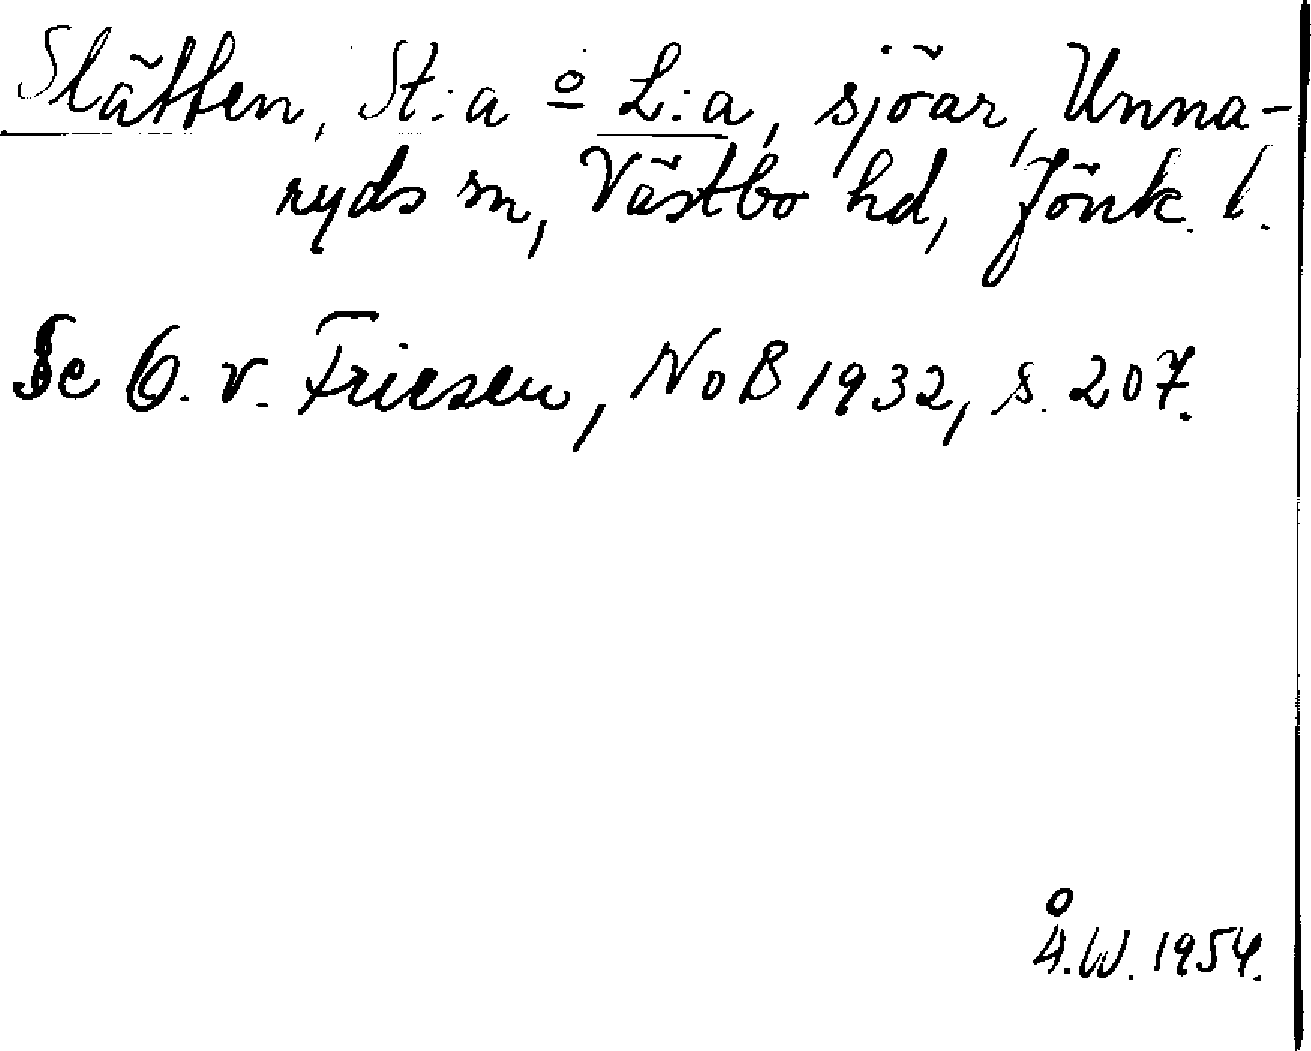 Slätten, St:a o L:a, sjöar, Unna-
ryds sn, Västbo hd, Jönk. l.
Se O. v. Friesen, NoB 1932, s. 207.
Å.W. 1954.